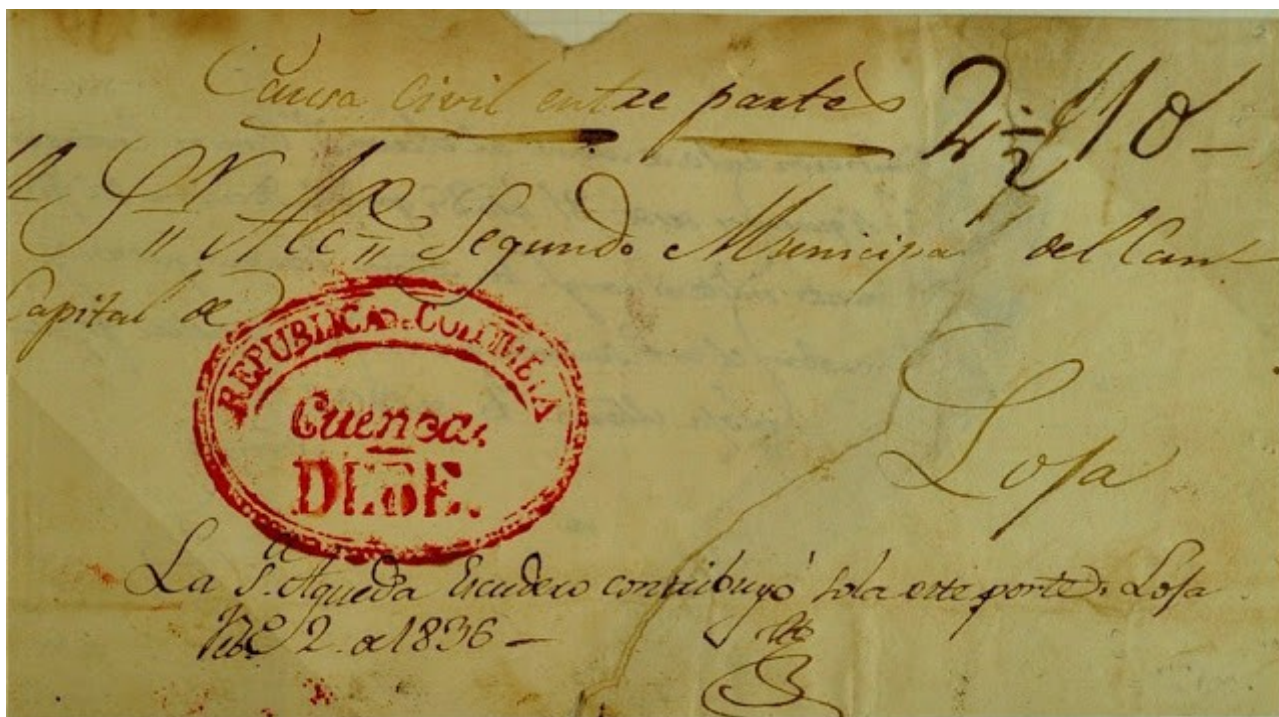 Causa civil entre partes 2½ / 10 –
Sr. Alce. Segundo Municipal del Can
Capital de
REPUBLICA DE COLOMBIA
Cuenca.
DEBE.
Loja
La Sa. Agueda Escudero contribuyó sola este porte. Loja
2. de 1836 –